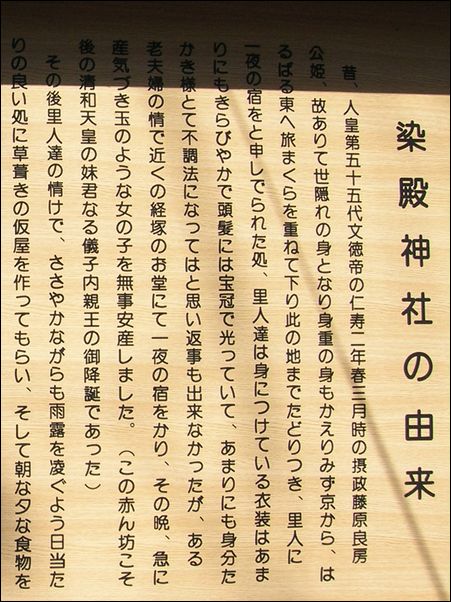 染殿神社の由来
昔、人皇第五十五代文徳帝の仁寿二年春三月時の摂政藤原良房
公姫、故ありて世隠れの身となり身重の身もかえりみず京から、は
るばる東へ旅まくらを重ねて下り此の地までたどりつき、里人に
一夜の宿をと申しでられた処、里人達は身につけている衣装はあま
りにもきらびやかで頭髪には宝冠で光っていて、あまりにも身分た
かき様とて不調法になってはと思い返事も出来なかったが、ある
老夫婦の情で近くの経塚のお堂にて一夜の宿をかり、その晩、急に
産気づき玉のような女の子を無事安産しました。（この赤ん坊こそ
後の清和天皇の妹君なる儀子内親王の御降誕であった）
その後里人達の情けで、ささやかながらも雨露を凌ぐよう日当た
りの良い処に草葺きの仮屋を作ってもらい、そして朝な夕な食物を